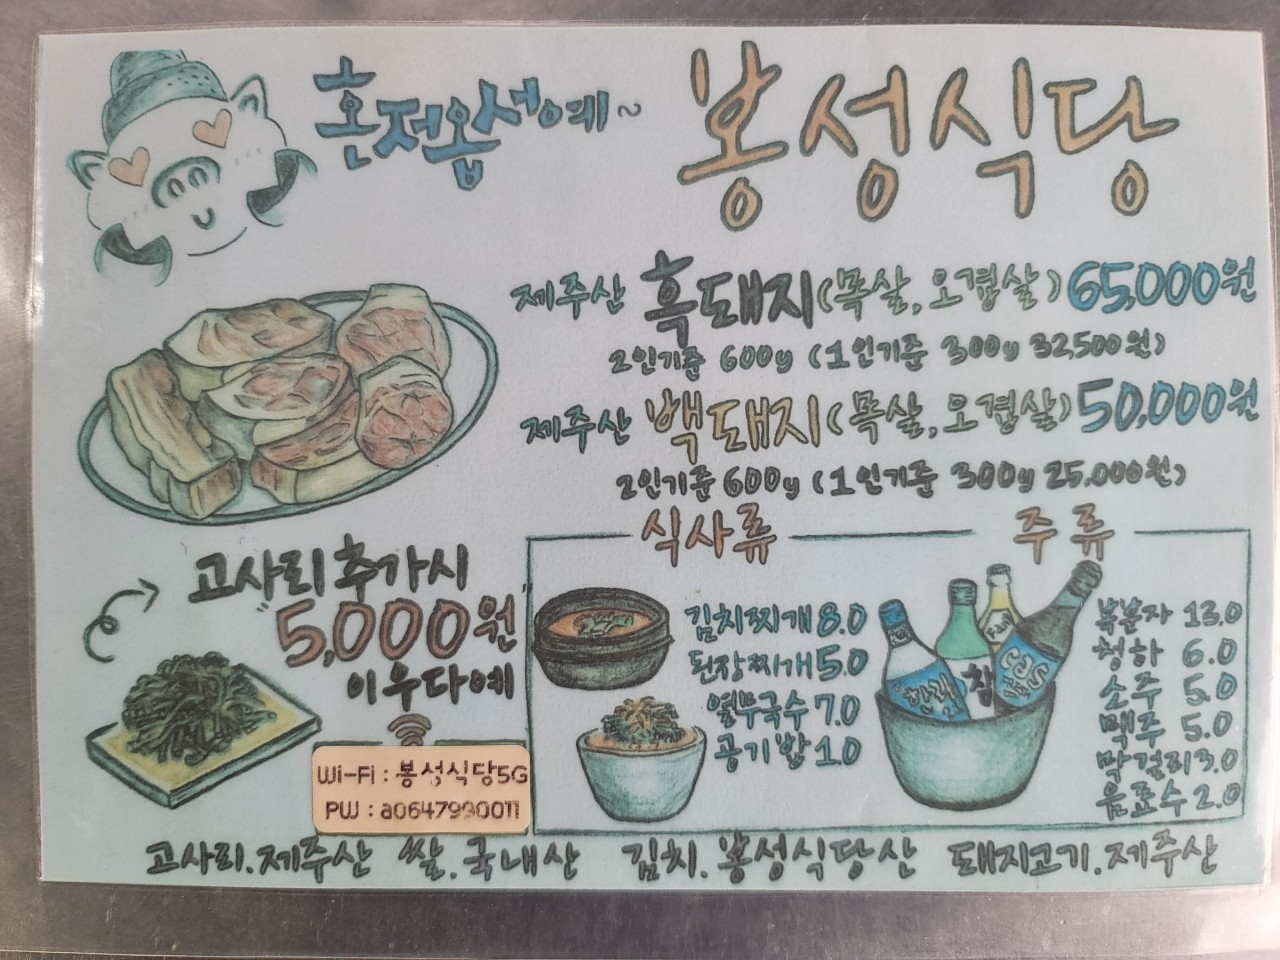 혼저옵서예~
봉성식당
제주산 흑돼지(목살,오겹살) 65,000원
2인기준 600g (1인기준 300g 32500원)
제주산 백돼지(목살,오겹살) 50,000원
2인기준 600g (1인기준 300g 25,000원)
고사리 추가시
"5,000원"
이우다예
식사류
김치찌개 8.0
된장찌개 5.0
열무국수 7.0
공기밥 1.0
주류
복분자 13.0
청하 6.0
소주 5.0
맥주 5.0
막걸리 3.0
음료수 2.0
한라
참
Cass
Wi-Fi : 봉성식당5G
PW : a0647990011
고사리.제주산 쌀.국내산 김치.봉성식당산 돼지고기.제주산